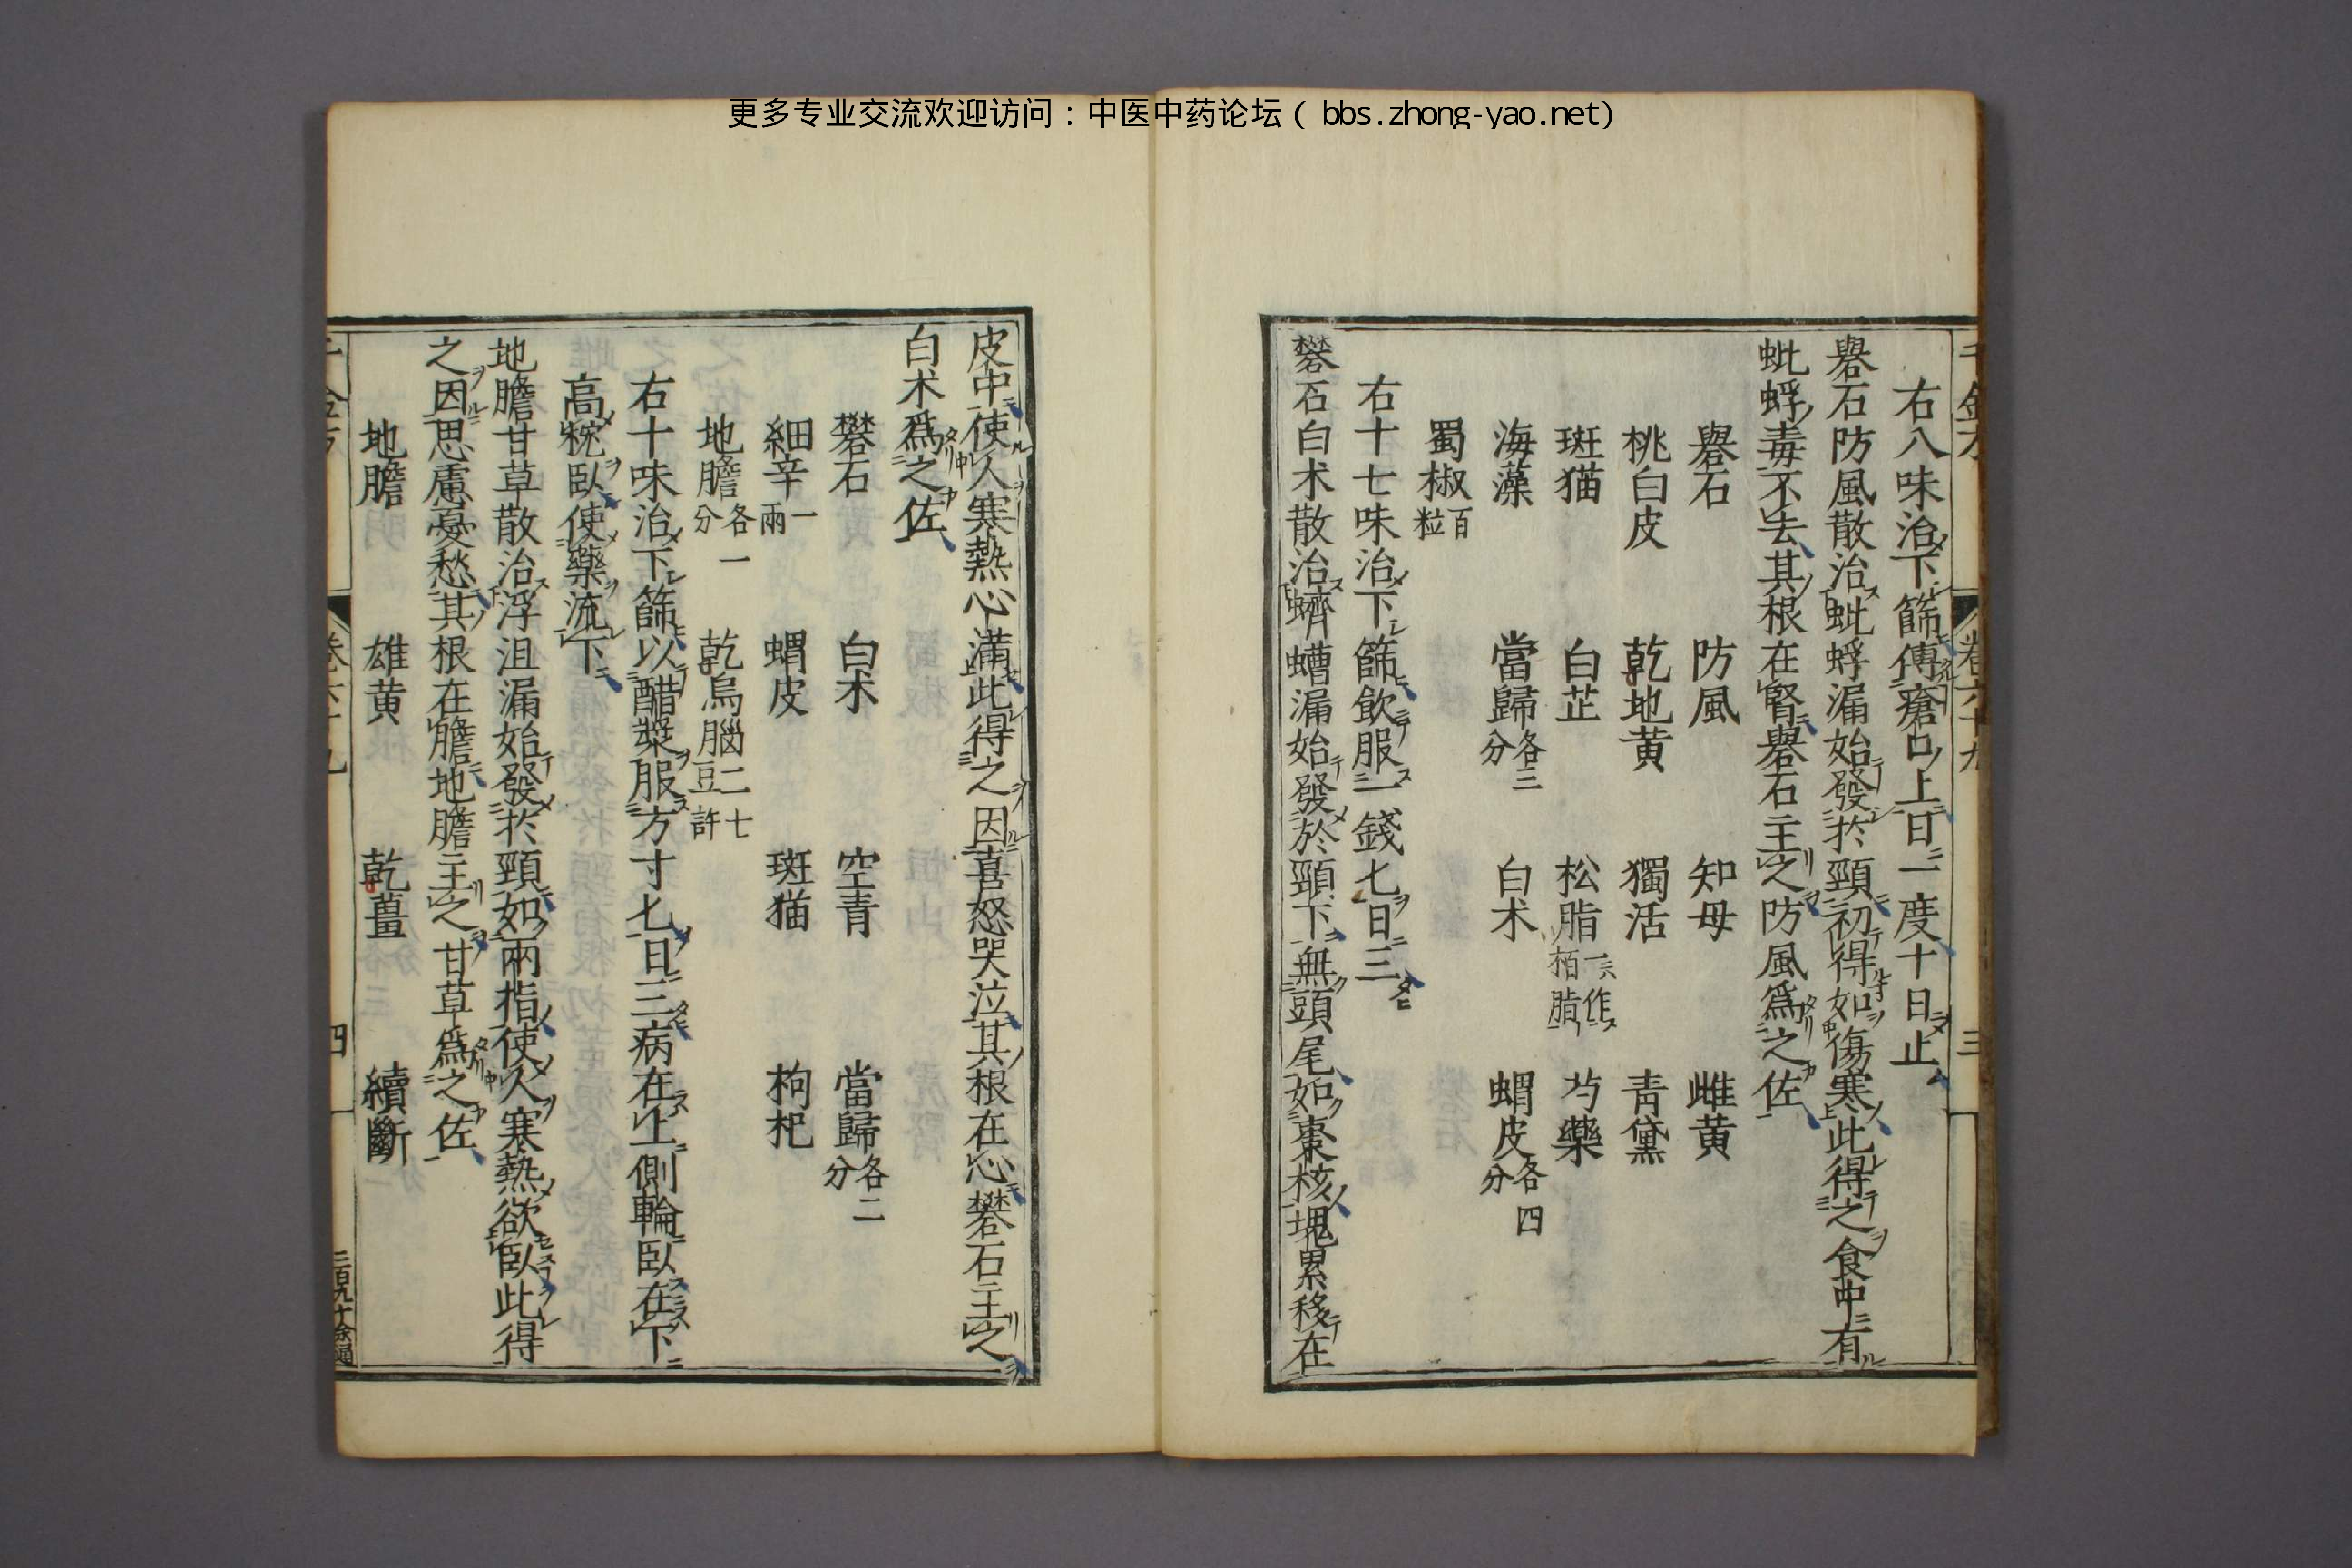 更多专业交流欢迎访问：中医中药论坛（ bbs.zhong-yao.net)
右八味治下篩傅瘡口上日一度十日止
礜石防風散治蚍蜉漏始發於頸初得如傷寒此得之食中有
蚍蜉毒不去其根在腎礜石主之防風爲之佐
礜石 防風 知母 雌黄
桃白皮 乾地黄 獨活 青黛
斑猫 白芷 松脂一作栢脂 芍藥
海藻 當歸各三分 白术 蝟皮各四分
蜀椒百粒
右十七味治下篩飲服一錢七日三
礬石白术散治蠐螬漏始發於頸下無頭尾如棗核塊累移在
皮中使人寒熱心滿此得之因喜怒哭泣其根在心礬石主之
白术爲之佐
礬石 白术 空青 當歸各二分
細辛一兩 蝟皮 斑猫 枸杞
地膽各一分 乾烏腦二七豆許
右十味治下篩以醋漿服方寸七日三病在上側輪臥在下
高枕臥使藥流下
地膽甘草散治浮沮漏始發於頸如兩指使人寒熱欲臥此得
之因思慮憂愁其根在膽地膽主之甘草爲之佐
地膽 雄黄 乾薑 續斷